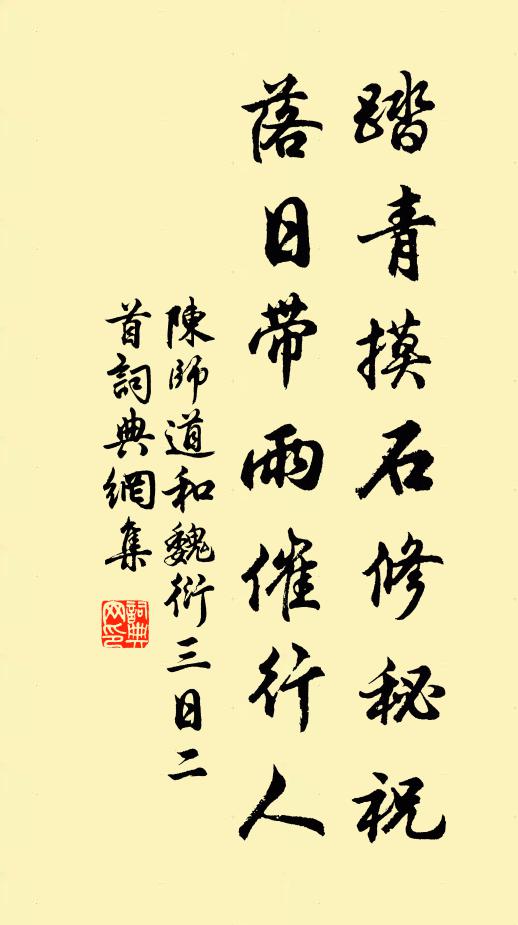 踏青摸石修秘祝
落日帶雨催行人
陳師道和魏衍三日二
首詞典網集
詞典
网印